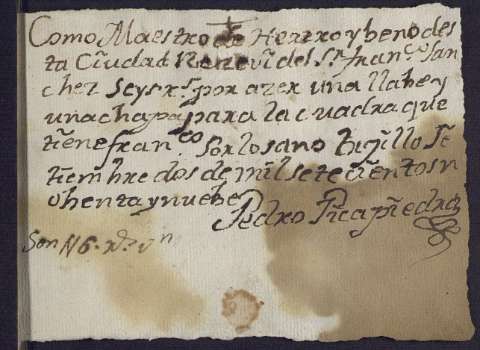 Como Maestro de Herrero y beno des
ta Ciudad Reneví del Sr. franco. San
chez Seys rs. por azer una llabe y
una chapa para la cuadra que
tiene franco. Por lo sano Bigillo Se
tiembre dos de mil sete cientos n
ohenta y nuebe
Pedro Picapiedra
Son 6 rs. vn